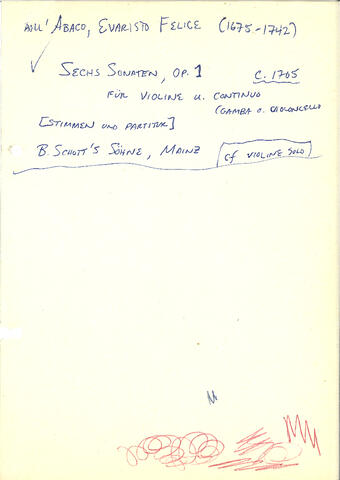 dall' Abaco, Evaristo Felice (1675-1742)
Sechs Sonaten, Op. 1 c. 1705
für Violine u. Continuo
(Gamba o. Violoncello
[Stimmen und Partitur]
B. Schott's Söhne, Mainz cf Violine Solo